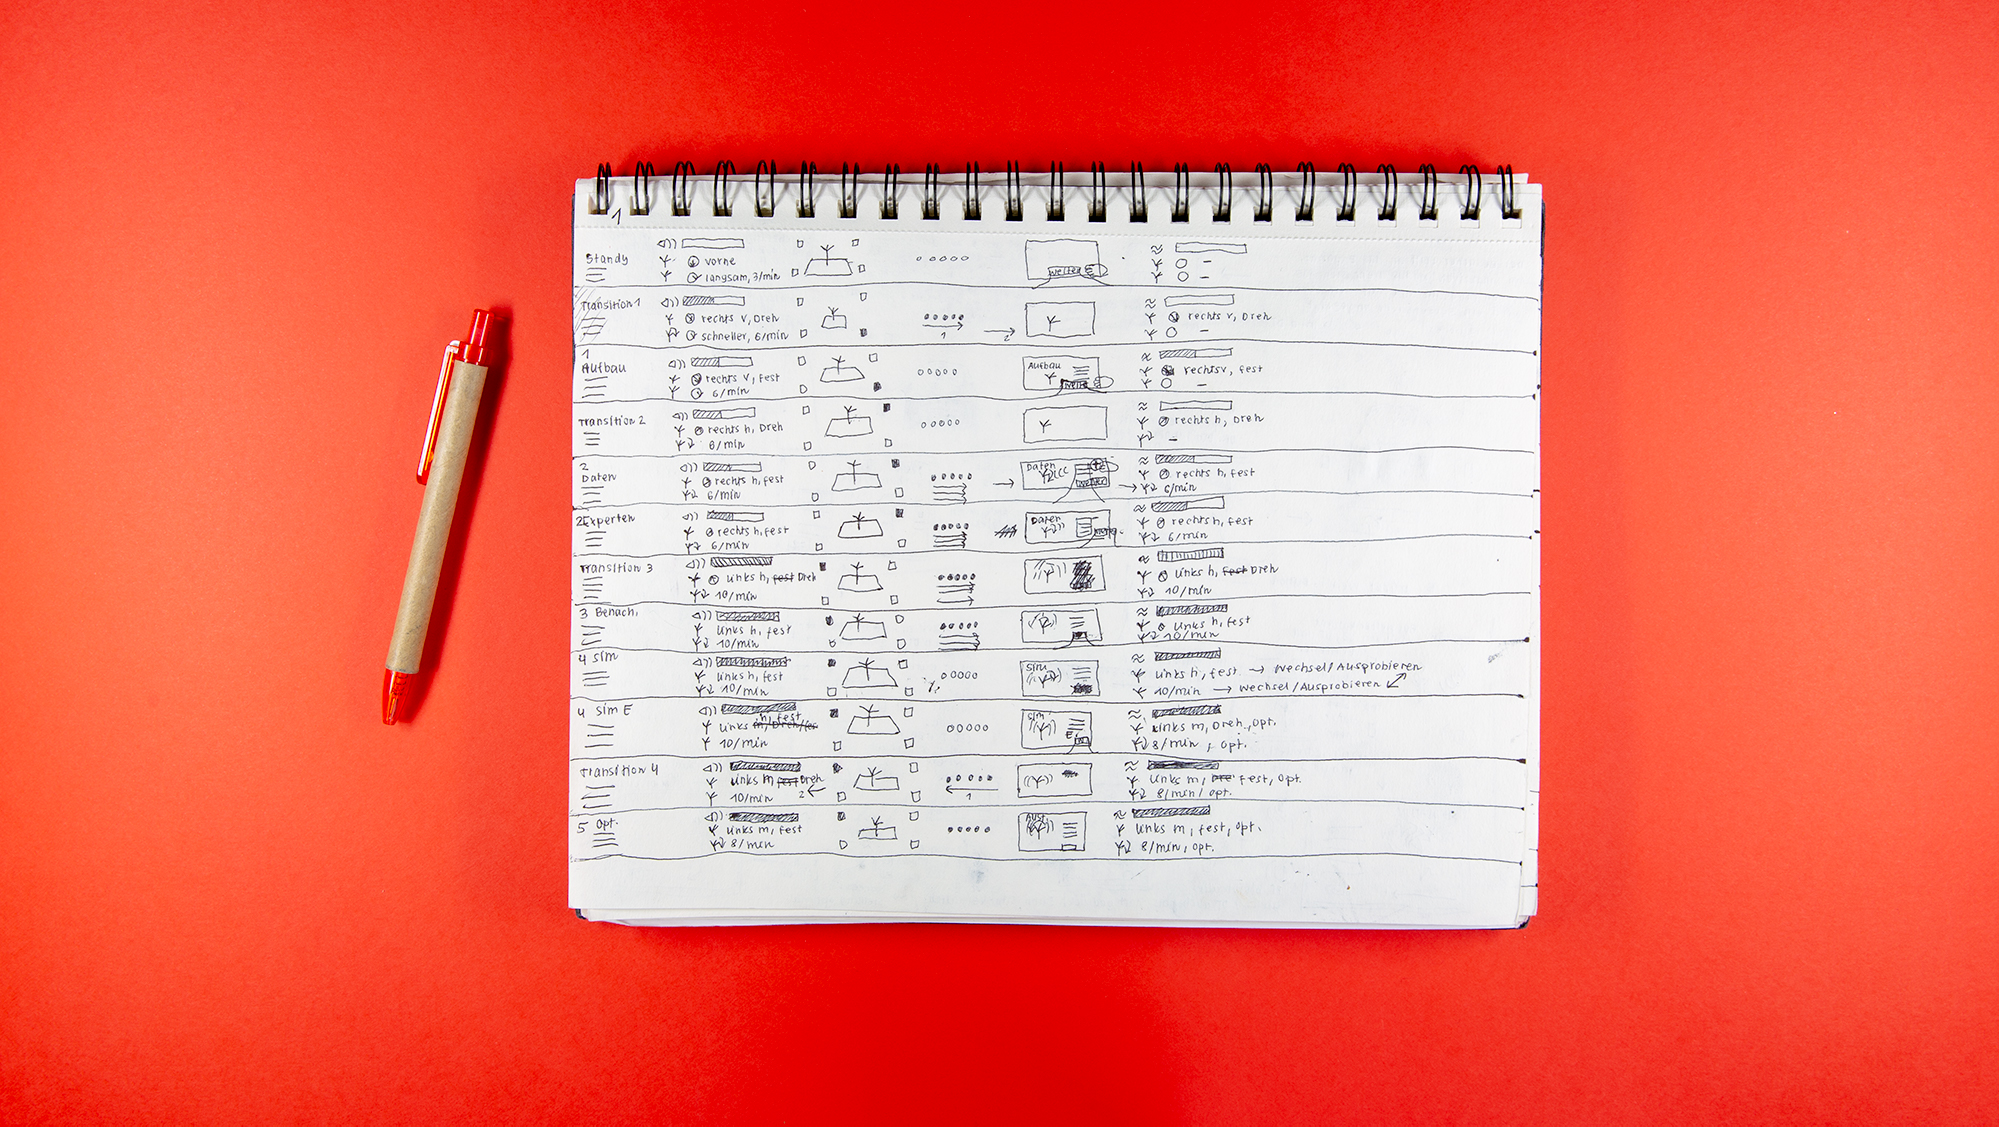 1
Standy
vorne
langsam, 3/min
weiter
–
–
Transition 1
rechts v, Dreh
schneller, 6/min
1
2
rechts v, Dreh
–
1
Aufbau
rechts v, fest
6/min
Aufbau
rechts v, fest
–
Transition 2
rechts h, Dreh
6/min
rechts h, Dreh
–
2
Daten
rechts h, fest
6/min
Daten
weiter
rechts h, fest
6/min
2 Experten
rechts h, fest
6/min
Daten
rechts h, fest
6/min
Transition 3
links h, fest Dreh
10/min
links h, fest Dreh
10/min
3 Benach.
links h, fest
10/min
links h, fest
10/min
4 Sim
links h, fest
10/min
Sim
links h, fest → Wechsel/Ausprobieren
10/min → Wechsel/Ausprobieren
4 Sim E
h, fest
links m, Dreh/fest
10/min
Sim
E
links m, Dreh, opt.
8/min, opt.
Transition 4
links m, fest Dreh
10/min
2
1
links m, Dre fest, opt.
8/min, opt.
5 Opt.
links m, fest
8/min
links m, fest, opt.
8/min, opt.